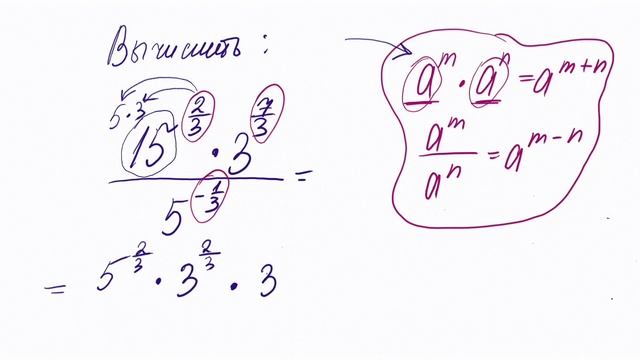 Вычислить:
5·3
15^(2/3) · 3^(7/3)
5^(-1/3) =
= 5^(2/3) · 3^(2/3) · 3
a^m · a^n = a^(m+n)
a^m / a^n = a^(m-n)